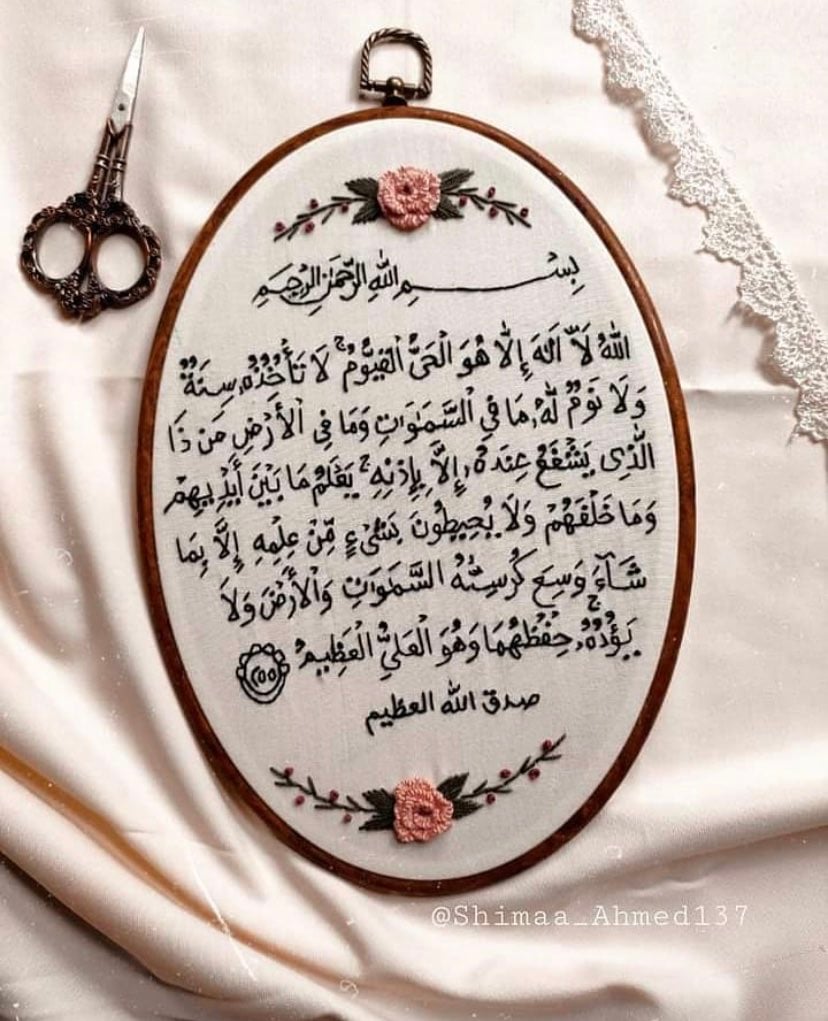 بِسْمِ اللهِ الرَّحْمٰنِ الرَّحِيمِ
اللهُ لَآ اِلَٰهَ إِلَّا هُوَ الْحَىُّ الْقَيُّومُ ۚ لَا تَأْخُذُهُۥ سِنَةٌ
وَلَا نَوْمٌ لَّهُۥ مَا فِي السَّمَٰوَاتِ وَمَا فِى الْأَرْضِ مَن ذَا
الَّذِى يَشْفَعُ عِندَهُۥ إِلَّا بِإِذْنِهِ ۚ يَعْلَمُ مَا بَيْنَ أَيْدِيهِمْ
وَمَا خَلْفَهُمْ وَلَا يُحِيطُونَ بِشَىْءٍ مِّنْ عِلْمِهِ إِلَّا بِمَا
شَآءَ وَسِعَ كُرْسِيُّهُ السَّمَٰوَاتِ وَالْأَرْضَ وَلَا
يَؤُدُهُۥ حِفْظُهُمَا ۚ وَهُوَ الْعَلِىُّ الْعَظِيمُ ٢٥٥
صدق الله العظيم
@Shimaa_Ahmed137